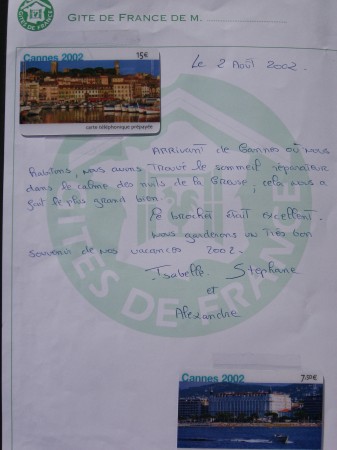 GITE DE FRANCE DE M.
Cannes 2002
15€
carte téléphonique prépayée
Le 2 Août 2002.
Arrivant de Cannes où nous
habitons, nous avons trouvé le sommeil réparateur
dans le calme des nuits de la Creuse, cela nous a
fait le plus grand bien.
Le brochet était excellent.
Nous garderons un très bon
souvenir de nos vacances 2002.
Isabelle. Stéphane
et
Alexandre
GITES DE FRANCE
Cannes 2002
7,50€